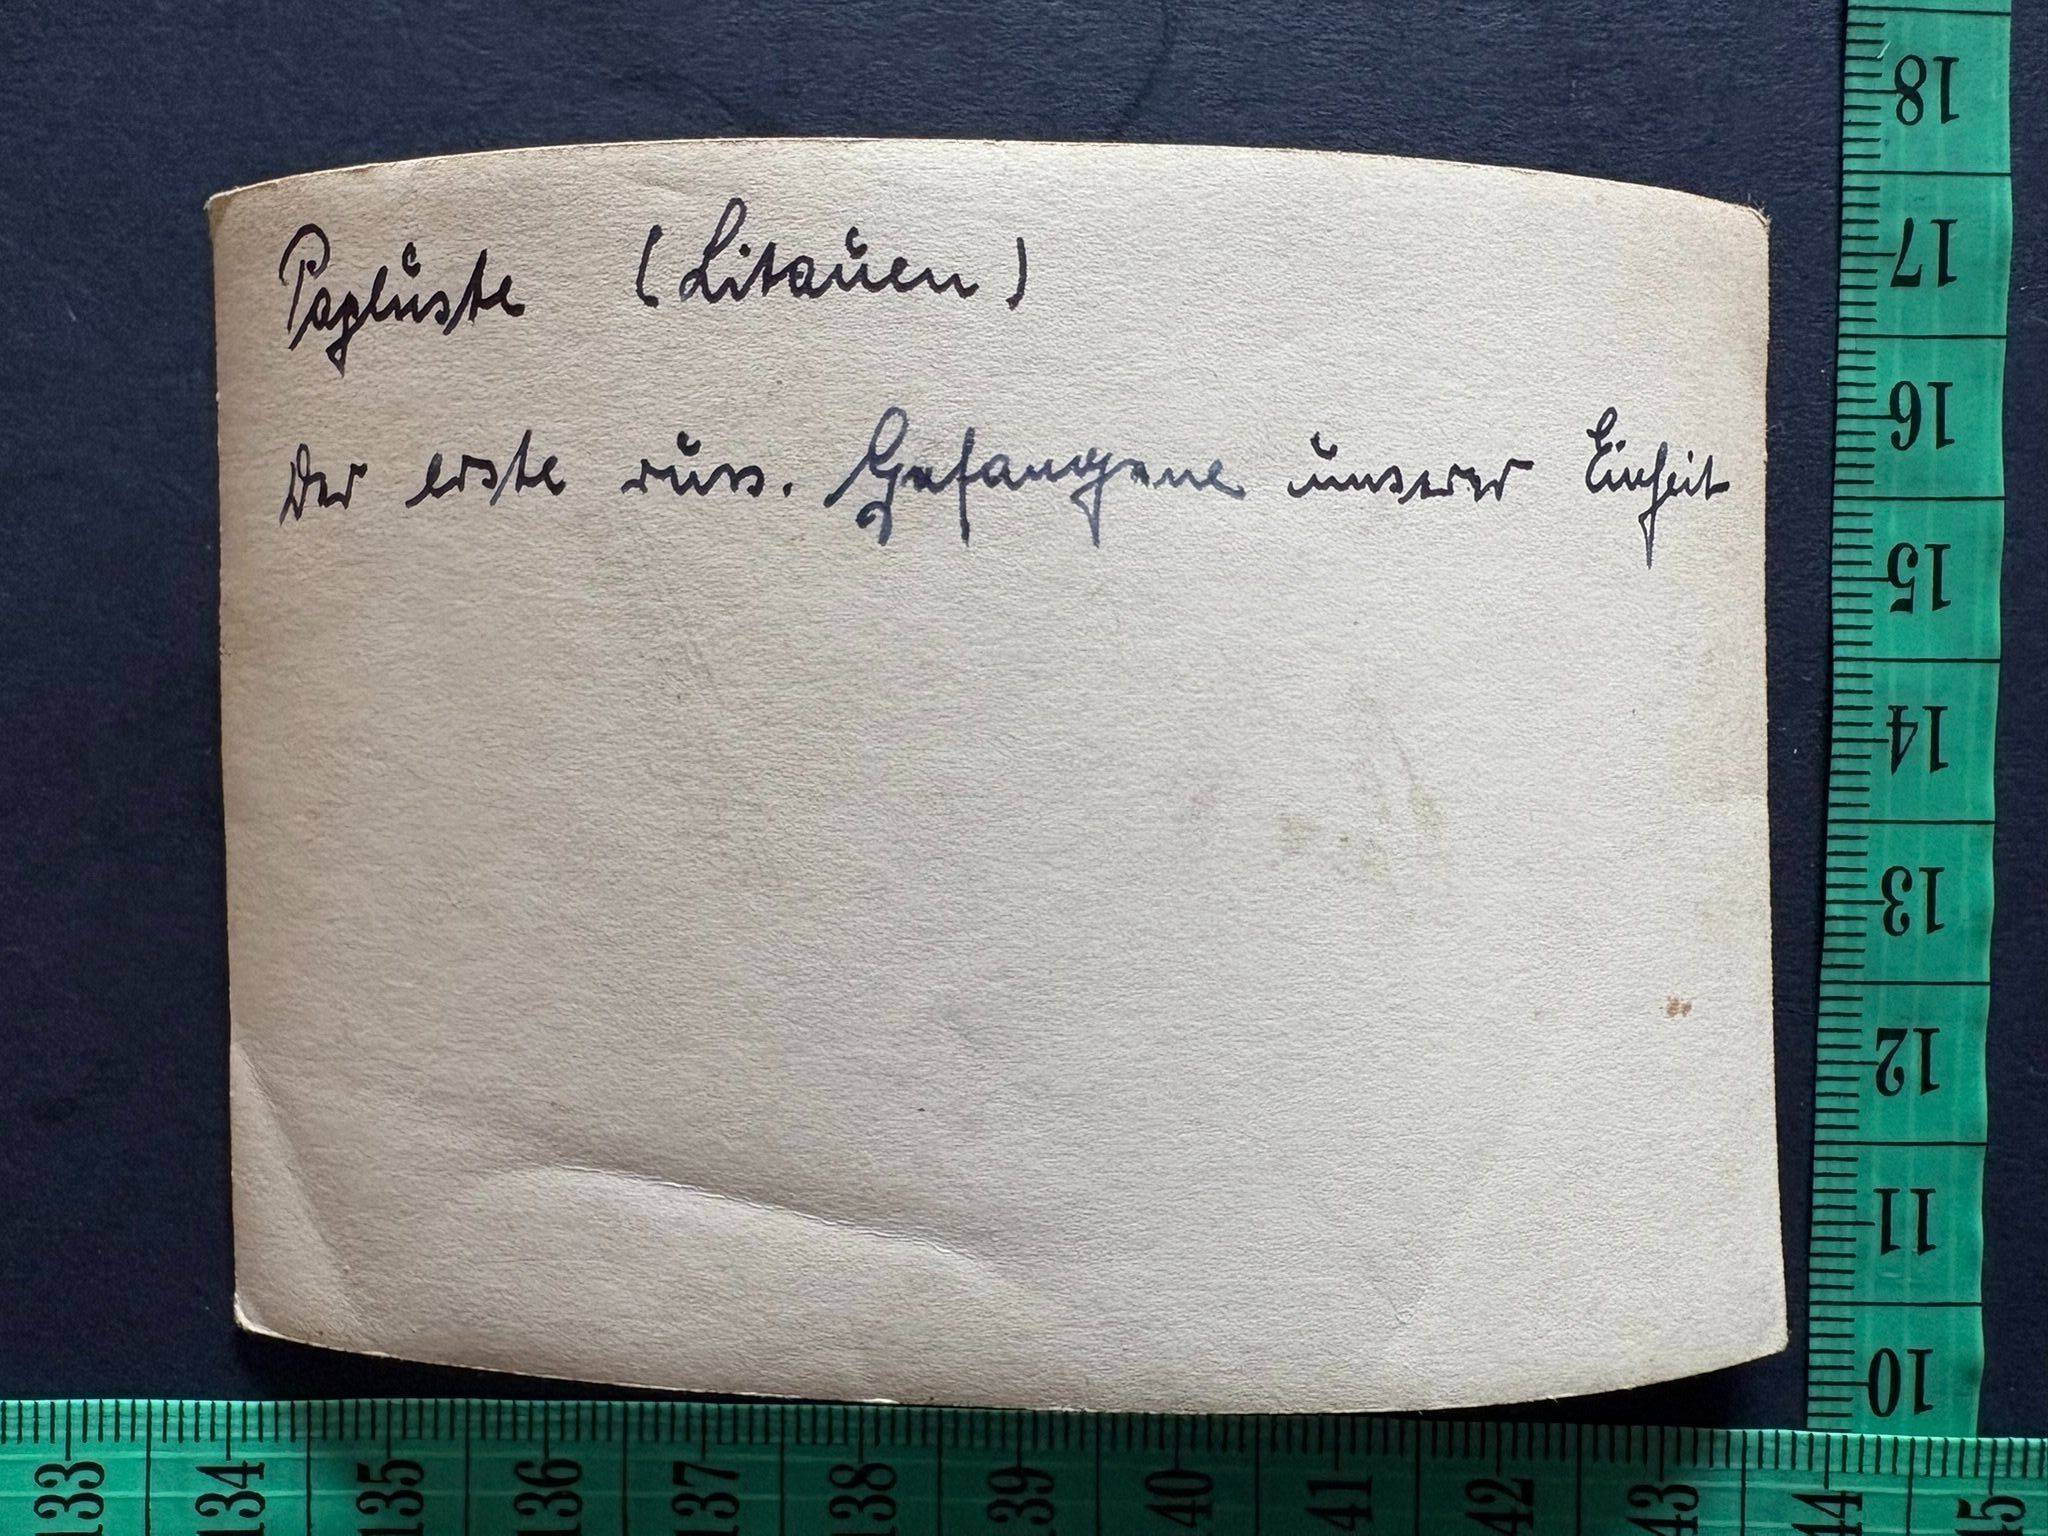 Pagluste (Litauen)
Der erste russ. Gefangene unserer Einheit
18
17
16
15
14
13
12
11
10
133
134
135
136
137
138
139
40
41
42
43
44
5